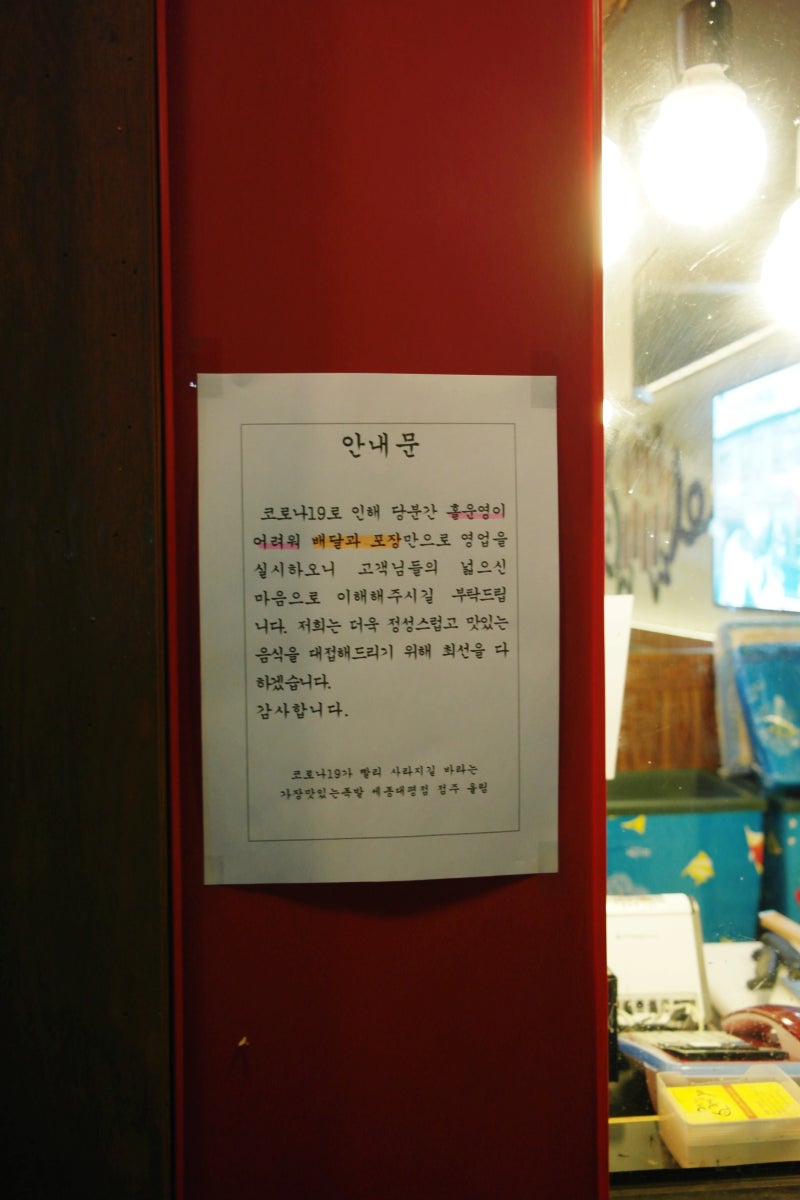 안내문
코로나19로 인해 당분간 홀운영이
어려워 배달과 포장만으로 영업을
실시하오니 고객님들의 넓으신
마음으로 이해해주시길 부탁드립
니다. 저희는 더욱 정성스럽고 맛있는
음식을 대접해드리기 위해 최선을 다
하겠습니다.
감사합니다.
코로나19가 빨리 사라지길 바라는
가장맛있는족발 세종대평점 점주 올림